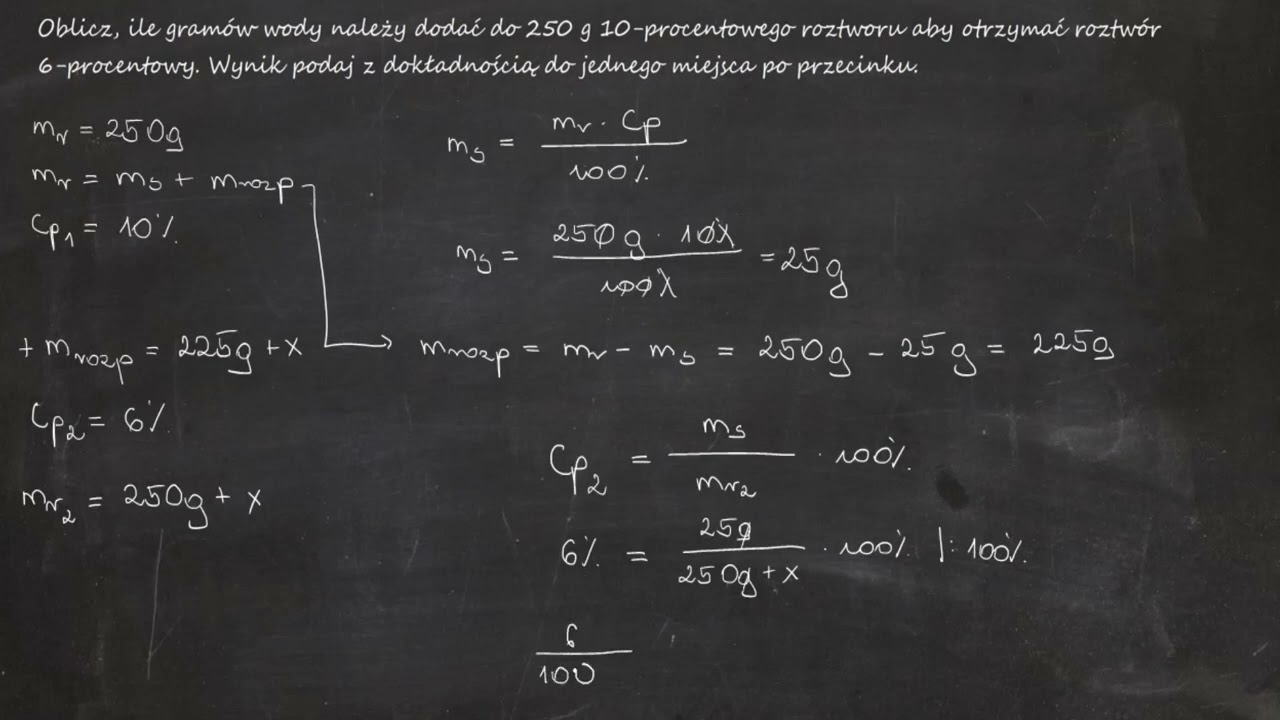 Oblicz, ile gramów wody należy dodać do 250 g 10-procentowego roztworu aby otrzymać roztwór
6-procentowy. Wynik podaj z dokładnością do jednego miejsca po przecinku.
mr = 250g
mr = ms + mrozp
Cp1 = 10%
ms = mr · Cp / 100%
ms = 250g · 10% / 100% = 25g
+ mrozp = 225g + x
mrozp = mr - ms = 250g - 25g = 225g
Cp2 = 6%
mr2 = 250g + x
Cp2 = ms / mr2 · 100%
6% = 25g / 250g + x · 100% |: 100%
6 / 100